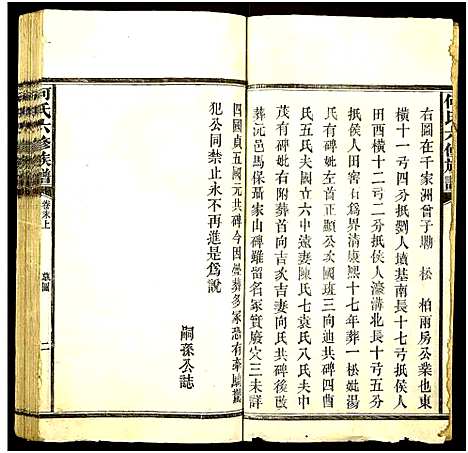 何氏六修族譜
右圖在千家洲曾子塅 松 柏兩房公業也東
橫十一弓四分抵劉人墳基南長十七弓抵侯人
田西橫十二弓二分抵侯人濠溝北長十弓五分
抵侯人田窖石爲界清康熙十七年葬一松妣湯
氏有碑妣左葬首正顯公次國珽三向迪共碑四酉
氏五氏夫國立六中遠妻陳氏七袁氏八氏夫中
茂有碑妣右附葬首向吉次吉妻向氏共碑後改
葬沅邑馬保聶家山碑雖留名冢實廢穴三未詳
四國貞五國元共碑今因壘葬多冢恐有牽
犯公同禁止永不再進是爲說
嗣孫公誌
何氏六修族譜
卷末上
墓圖
二